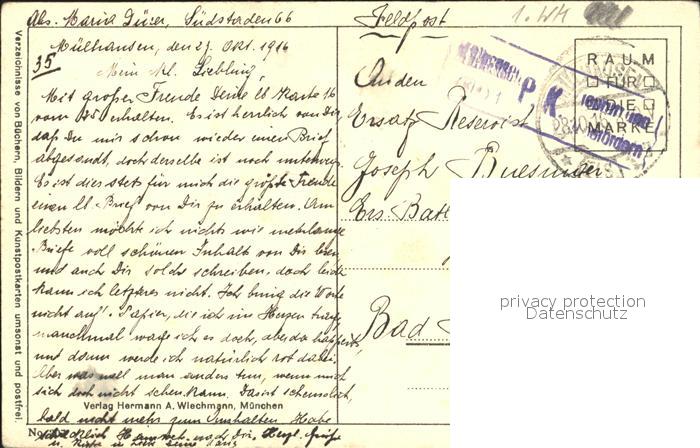 Abs. Maria Düser, Südstaden 66
Mülhausen, den 27. Okt. 1916
35
Mein kl. Liebling,
Mit großer Freude Deine lb Karte 16
vom 25 erhalten. Es ist herrlich von Dir
daß Du mir schon wieder einen Brief
abgesandt, doch derselbe ist noch unterwegs.
Es ist dies stets für mich die größte Freude
einen lb. Brief von Dir zu erhalten. Am
liebsten möcht ich nichts wie mehr lange
Briefe voll schönen Inhalt von Dir lesen
und auch Dir solche schreiben, doch leider
kann ich letzteres nicht. Ich bring die Worte
nicht auf's Papier, die ich im Herzen trage
manchmal wage ich es doch, aber da hapert's,
und dann werde ich natürlich rot dabei
Aber was will man anders tun, wenn mich
sich doch nicht sehen kann. Das ist scheuslich,
bald nicht mehr zum Aushalten. Habe
schrecklich Hausweh nach Dir. Herzl. Grüße
u. Küsse in Liebe Deine
Feldpost
1. WK
An den
Ersatz Reservist
Joseph
Ers. Batt
Bad
RAUM
FÜR
DIE
MARKE
P K
Verzeichnisse von Büchern, Bildern und Kunstpostkarten umsonst und postfrei.
Verlag Hermann A. Wiechmann, München
No.
privacy protection
Datenschutz